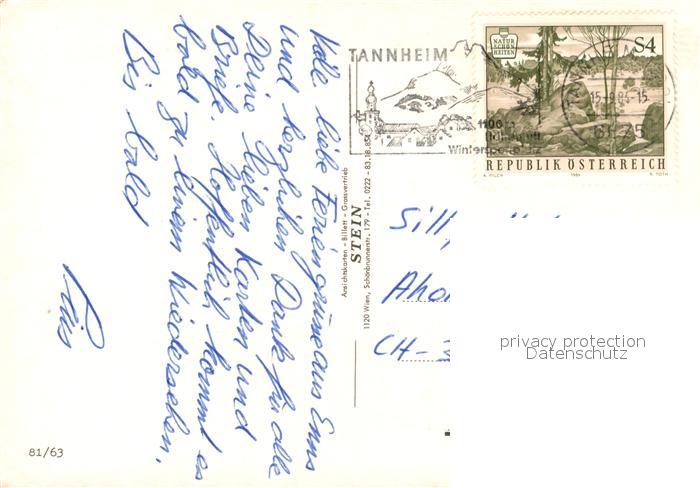 Viele liebe Feriengrüsse aus Enns
und herzlichen Dank für alle
Deine lieben Karten und
Briefe. Hoffentlich kommt es
bald zu einem Wiedersehen.
Bis bald
81/63
Ansichtskarten - Billett - Grossvertrieb
STEIN
1120 Wien, Schönbrunnerstr. 179 - Tel. 0222 - 83.18.854
TANNHEIM
1100 m
Winter
NATUR
SCHÖN
HEITEN
S4
15.-9.84-15
REPUBLIK ÖSTERREICH
A. PILCH 1984 K. TOTH
CH-
privacy protection
Datenschutz